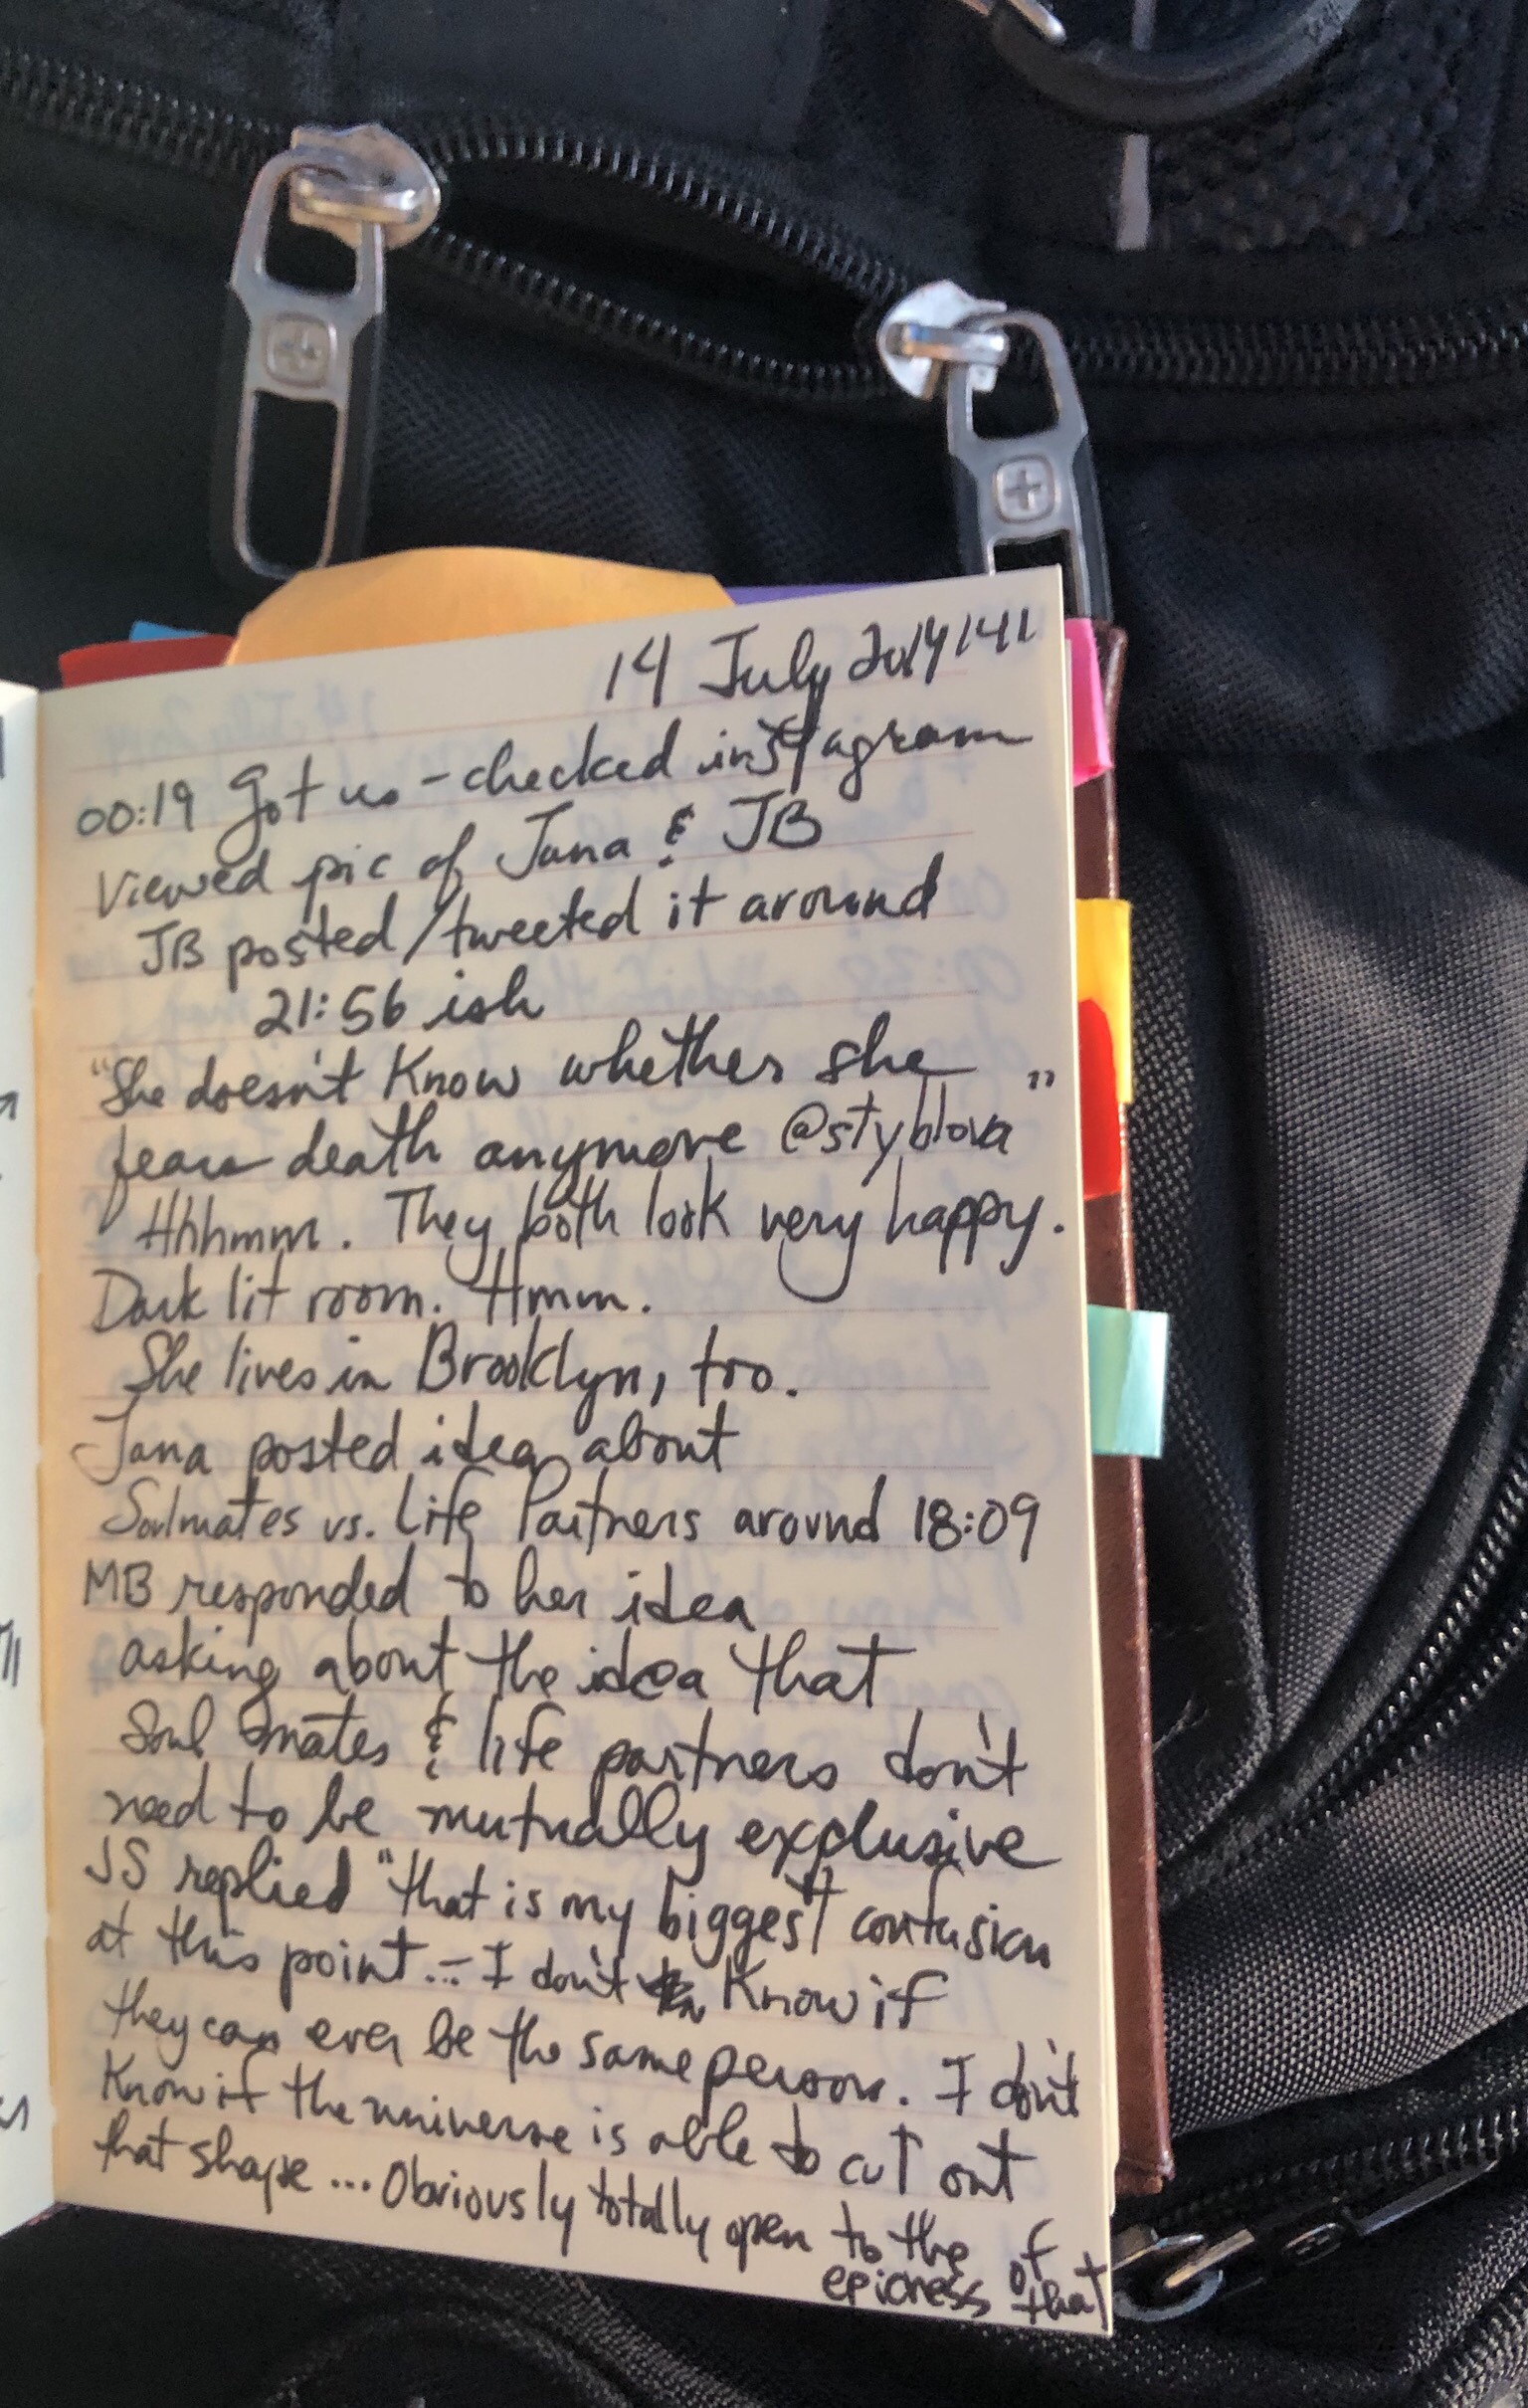 14 July 2014 141
00:19 Got up - checked instagram
Viewed pic of Jana & JB
JB posted/tweeted it around
21:56 ish
"She doesn't Know whether she
fears death anymore @styblova"
Hhhmm. They both look very happy.
Dark lit room. Hmm.
She lives in Brooklyn, too.
Jana posted idea about
Soulmates vs. Life Partners around 18:09
MB responded to her idea
asking about the idea that
Soul mates & life partners don't
need to be mutually exclusive
JS replied "that is my biggest confusion
at this point... I don't Know if
they can ever be the same person. I don't
Know if the universe is able to cut out
that shape... Obviously totally open to the
epicness of that